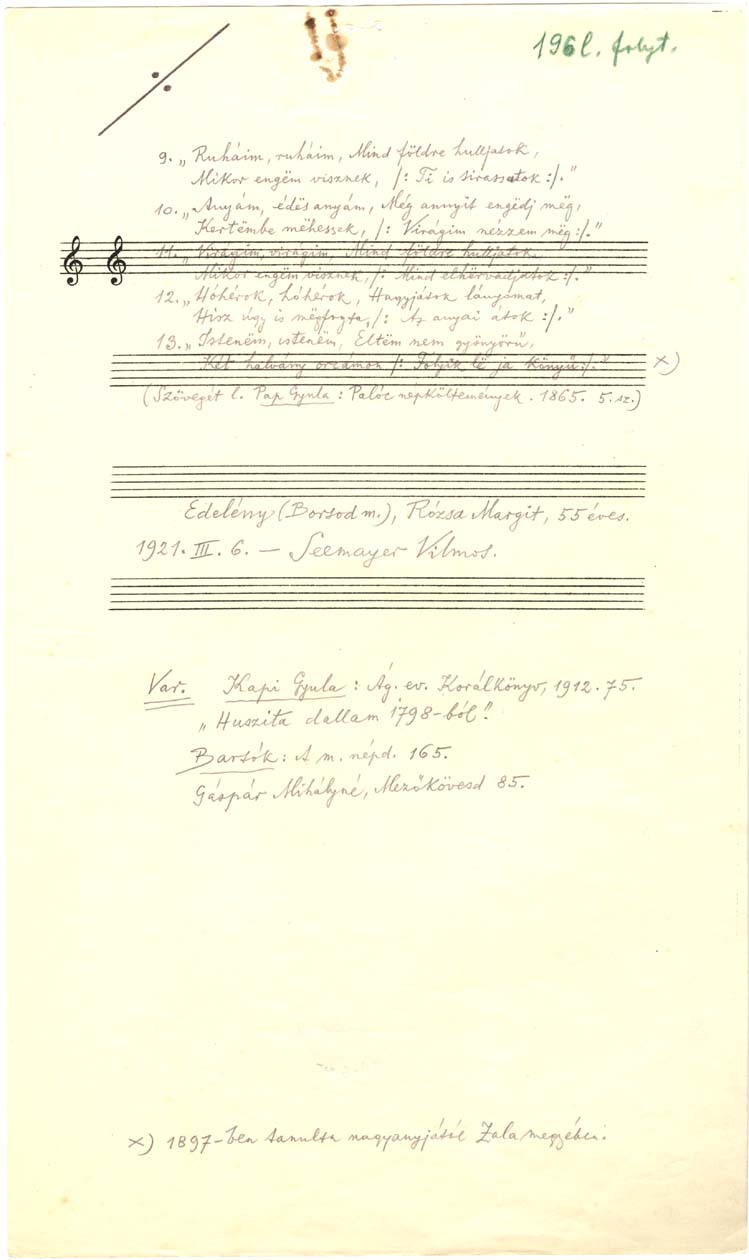 196l. folyt.
9. „Ruháim, ruháim, Mind földre hulljatok,
Mikor engëm visznek, /: Ti is sirassatok :/."
10. „Anyám, édës anyám, Még annyit engëdj mëg,
Kertëmbe mëhessek, /: Virágim nézzem mëg :/."
11. „Virágim, virágim, Mind földre hulljatok
Mikor engëm visznek, /: Mind elhërvadjatok :/."
12. „Hóhérok, hóhérok, Hagyjátok lányomat,
Hisz úgy is mëgfogta, /: Az anyai átok :/."
13. „Istenëm, istenëm, Éltëm nem gyönyörű,
Két halvány orcámon /: Folyik lë ja könyű :/." x)
(Szövegét l. Pap Gyula : Palóc népköltemények . 1865. 5. sz.)
Edelény (Borsod m.), Rózsa Margit, 55 éves.
1921. III. 6. — Seemayer Vilmos.
Var. Kapi Gyula : Ág. ev. Korálkönyv, 1912. 75.
„Huszita dallam 1798-ból".
Bartók : A m. népd. 165.
Gáspár Mihályné, Mezőkövesd 85.
x) 1897-ben tanulta nagyanyjától Zala megyében.